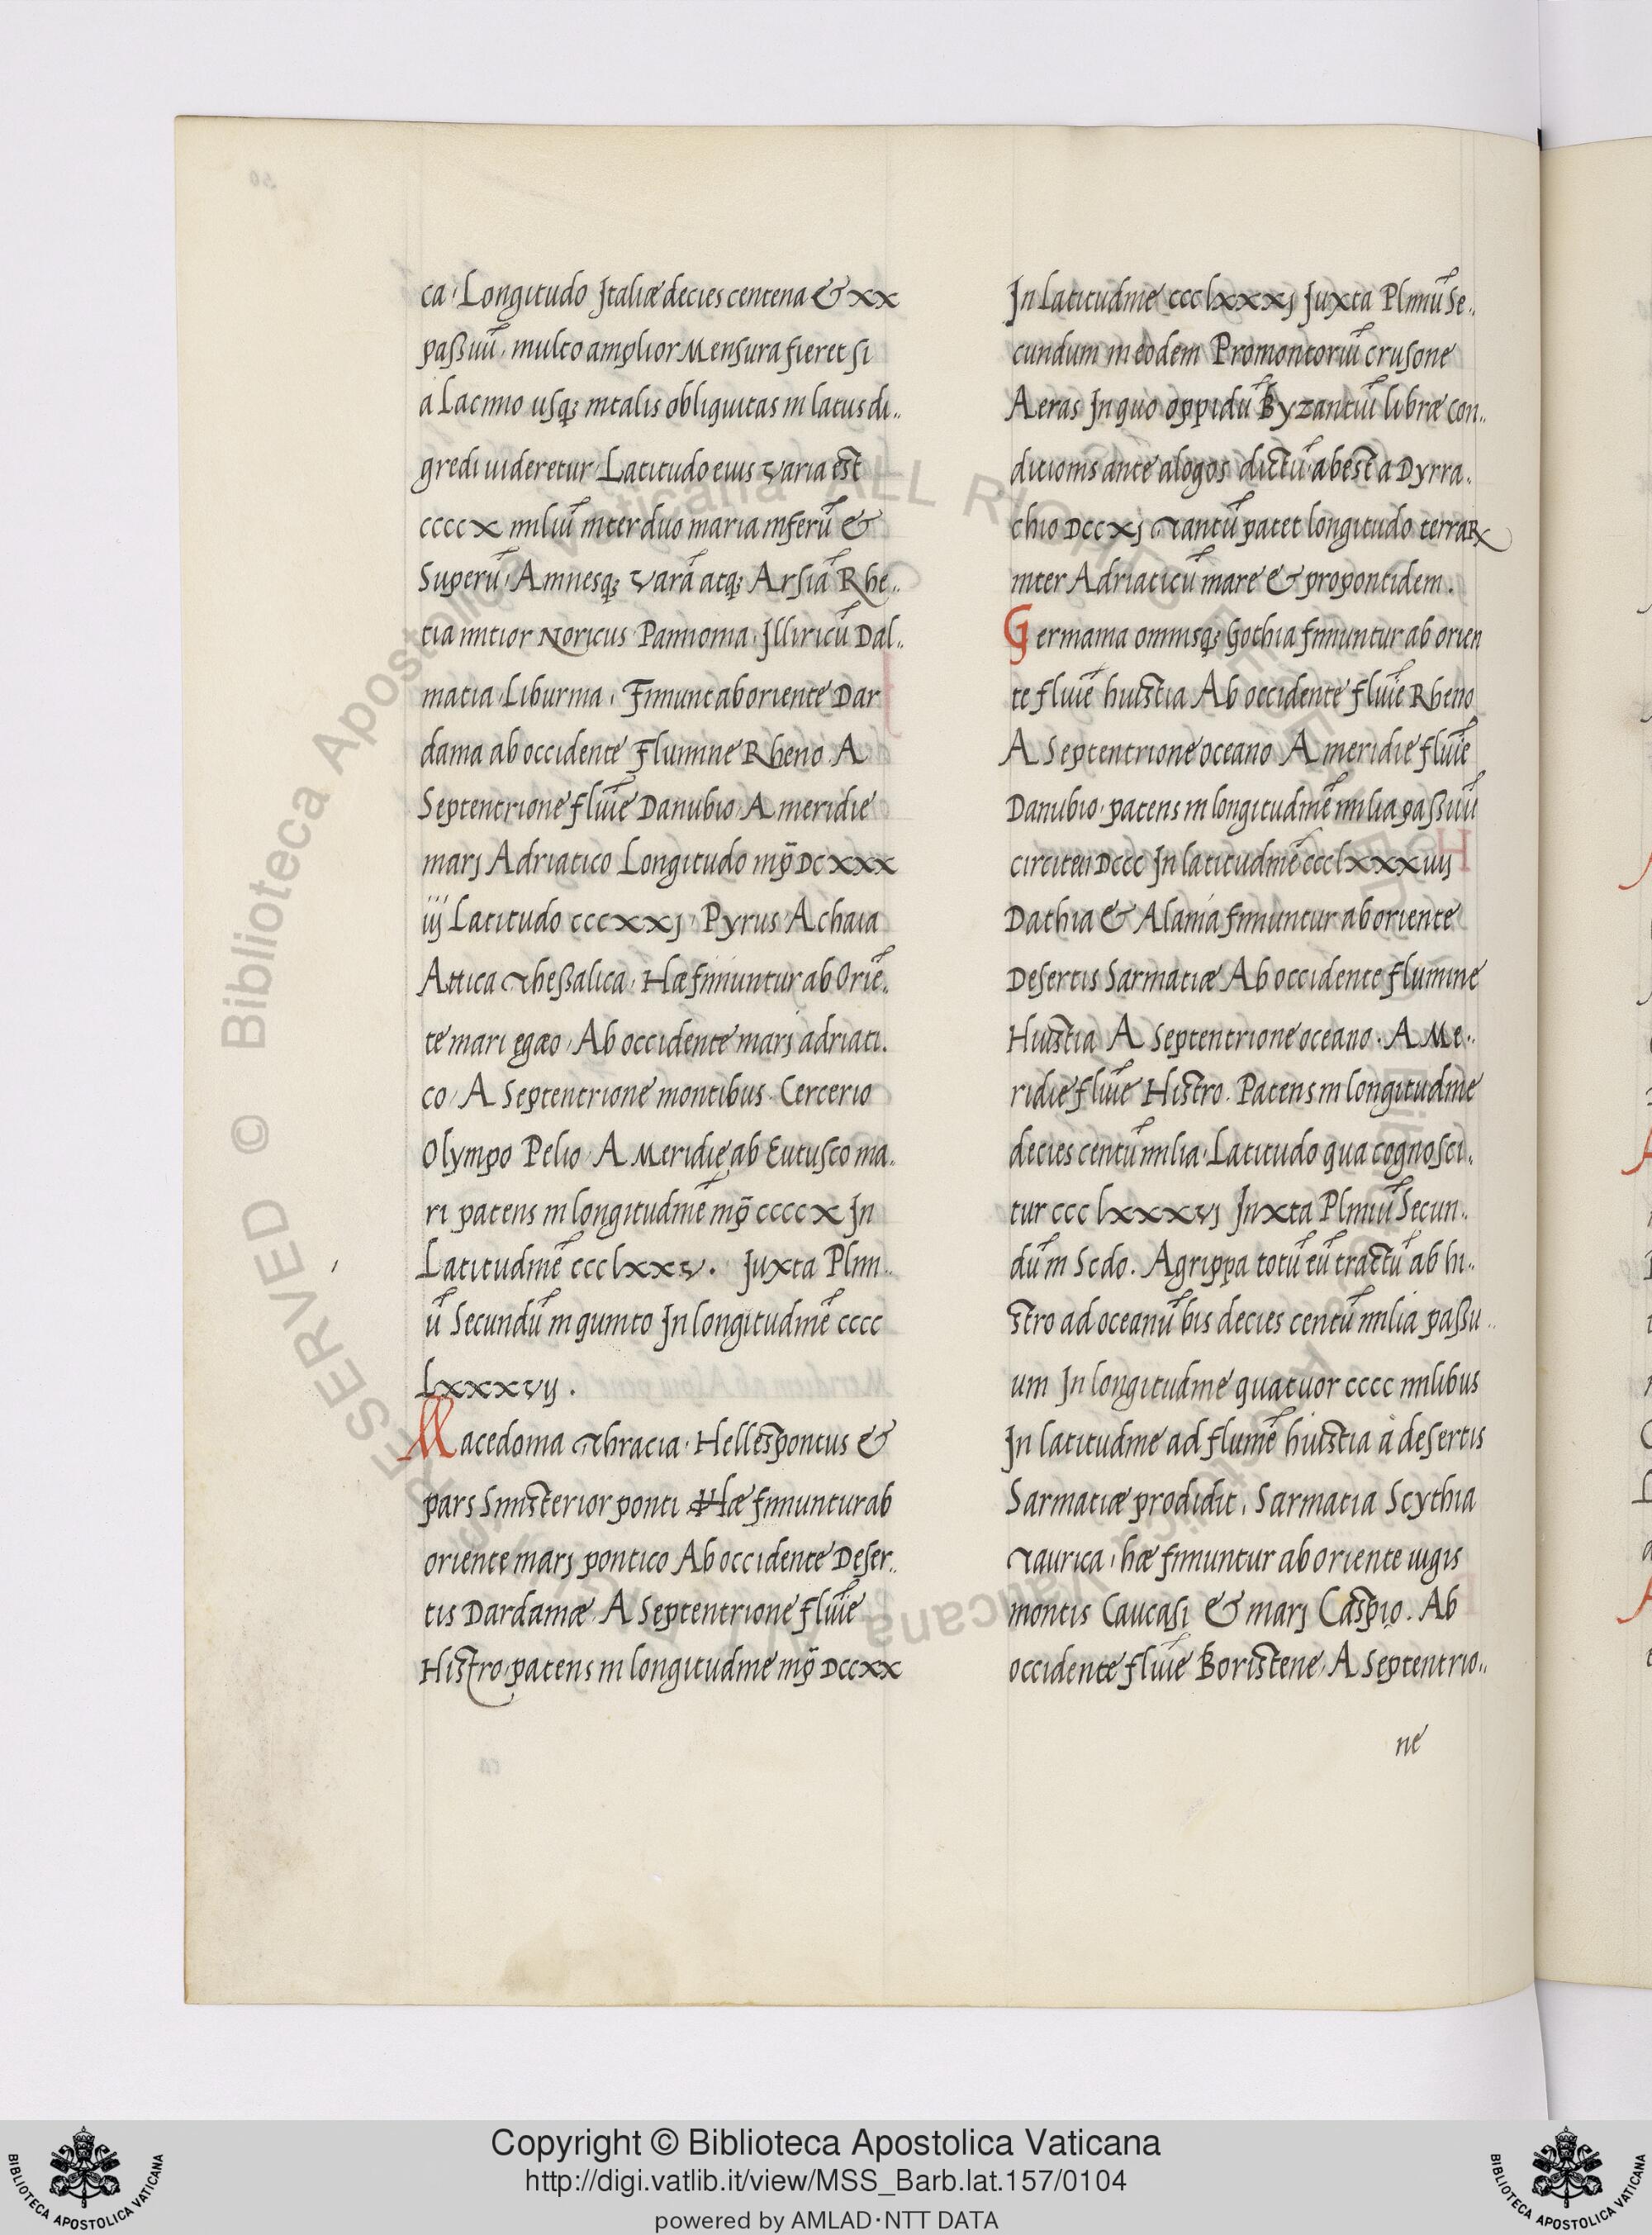 ca · Longitudo Italiæ decies centena & xx
paßuũ · multo amplior Mensura fieret si
a Lacinio usq; intalis obliquitas in latus di..
gredi uideretur · Latitudo eius varia est
ccccx miliũ inter duo maria inferũ &
Superũ · Amnesq; varã atq; Arsiã Rhe..
tia initior Noricus · Pannonia · Illiricũ Dal..
matia · Liburnia · Finiunt ab oriente Dar
dania ab occidente Flumine Rheno · A
Septentrione fluĩe Danubio · A meridie
marj Adriatico Longitudo mp̃ DCxxx
iij Latitudo cccxxj · Pyrus · Achaia
Attica Theßalica · Hæ finiuntur ab Oriẽ.
te mari egæo · Ab occidente marj adriati.
co · A Septentrione montibus · Cercerio
Olympo Pelio · A Meridie ab Eutusco ma.
ri patens in longitudinẽ mp̃ ccccx In
Latitudinẽ ccclxxv. Juxta Plini..
ũ Secundũ in quinto In longitudinẽ cccc
Lxxxvij.
Macedonia Thracia · Hellespontus &
pars Sinisterior ponti Hæ finiuntur ab
oriente marj pontico Ab occidente Deser..
tis Dardaniæ · A Septentrione fluĩe
Histro patens in longitudine mp̃ Dccxx
In Latitudine ccclxxxj Juxta Pliniũ Se..
cundum in eodem Promontoriũ crusone
Aeras In quo oppidũ Byzantiũ libræ con..
ditionis ante alogos dictũ abest a Dyrra.
chio Dccxj Tantũ patet longitudo terraꝝ
inter Adriaticũ mare & propontidem.
Germania omnisq; Gothia finiuntur ab orien
te fluiẽ huistia Ab occidente fluĩe Rheno
A Septentrione oceano A meridie fluĩe
Danubio · patens in longitudinẽ milia paßuũ
circiter Dccc In latitudinẽ ccclxxxiiij
Dathia & Alania finiuntur ab oriente
Desertis Sarmatiæ Ab occidente flumine
Huistia A Septentrione oceano · A Me..
ridie fluĩe Histro. Patens in longitudine
decies centũ milia · Latitudo qua cognosci.
tur ccclxxxvj Juxta Pliniũ Secun..
dũ in Scdo. Agrippa totũ eũ tractũ ab hi..
stro ad oceanũ bis decies centũ milia paßu..
um In longitudine quatuor cccc milibus
In latitudine ad flumẽ huistia a desertis
Sarmatiæ prodidit, Sarmatia Scythia
Taurica · hæ finiuntur ab oriente iugis
montis Caucasi & marj Caspio. Ab
occidente fluĩe Boristene · A Septentrio..
ne
Copyright © Biblioteca Apostolica Vaticana
http://digi.vatlib.it/view/MSS_Barb.lat.157/0104
powered by AMLAD·NTT DATA